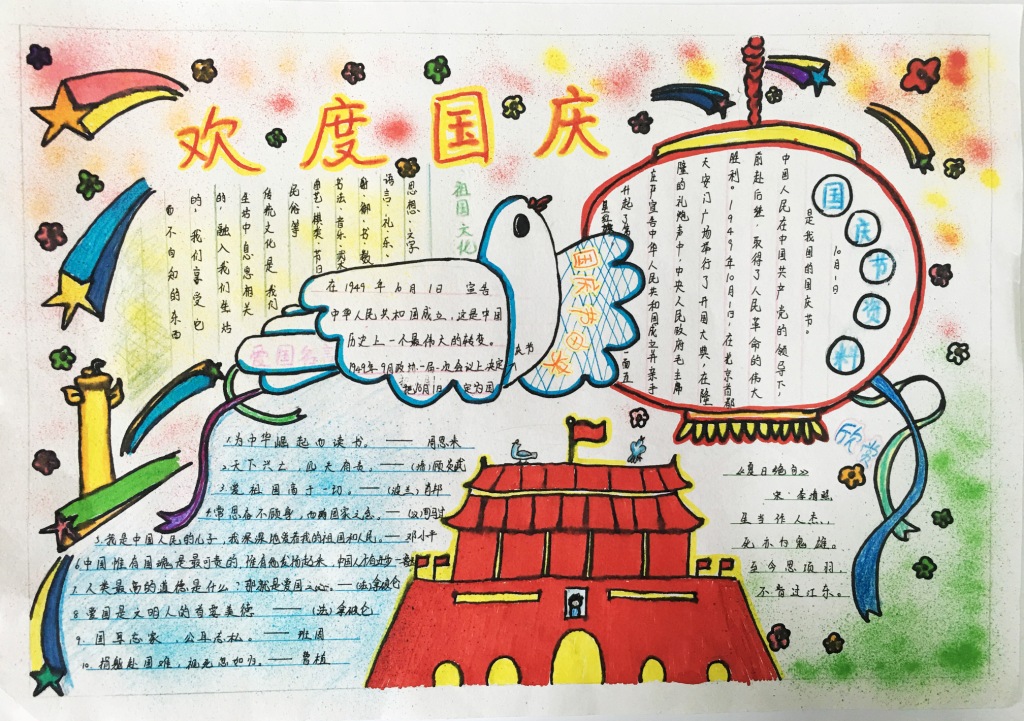 欢度国庆
祖国文化
思想·文字
语言·礼乐、
书法·音乐·武术
民俗等
传统文化是我们
生活中息息相关
的，融入我们生活
的，我们享受它
而不自知的东西
国庆节资料
10月1日
是我国的国庆节。
中国人民在中国共产党的领导下，
前赴后继，取得了人民革命的伟大
胜利。1949年10月1日，在北京首都
天安门广场举行了开国大典，在隆
隆的礼炮声中，中央人民政府毛主席
庄严宣告中华人民共和国成立并亲手
升起了第
国庆节由来
在1949年10月1日 宣告
中华人民共和国成立，这是中国
历史上一个最伟大的转变。
1949年9月政协一届一次会议上决定
把10月1日定为国庆节
爱国名言
1.为中华崛起而读书。——周恩来
2.天下兴亡，匹夫有责。——(清)顾炎武
3.爱祖国高于一切。——(波兰)肖邦
4.常思奋不顾身，而殉国家之急。——(汉)司马迁
5.我是中国人民的儿子，我深深地爱着我的祖国和人民。——邓小平
6.中国惟有国魂是最可贵的，惟有他发扬起来，中国人才有进步。
7.人类最高的道德是什么？那就是爱国之心。——(法)拿破仑
8.爱国是文明人的首要美德 ——(法)拿破仑
9.国耳忘家，公耳忘私。——班固
10.捐躯赴国难，视死忽如归。——曹植
欣赏
《夏日绝句》
宋·李清照
生当作人杰，
死亦为鬼雄。
至今思项羽，
不肯过江东。